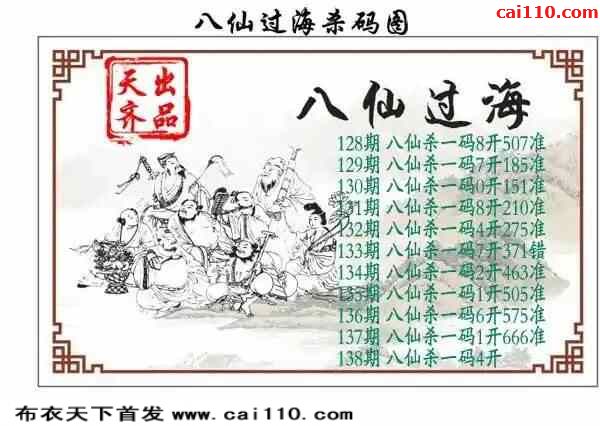 cai110.com
八仙过海杀码图
天齐出品
八仙过海
128期 八仙杀一码8开507准
129期 八仙杀一码7开185准
130期 八仙杀一码0开151准
131期 八仙杀一码8开210准
132期 八仙杀一码4开275准
133期 八仙杀一码7开371错
134期 八仙杀一码2开463准
135期 八仙杀一码1开505准
136期 八仙杀一码6开575准
137期 八仙杀一码1开666准
138期 八仙杀一码4开
布衣天下首发 www.cai110.com